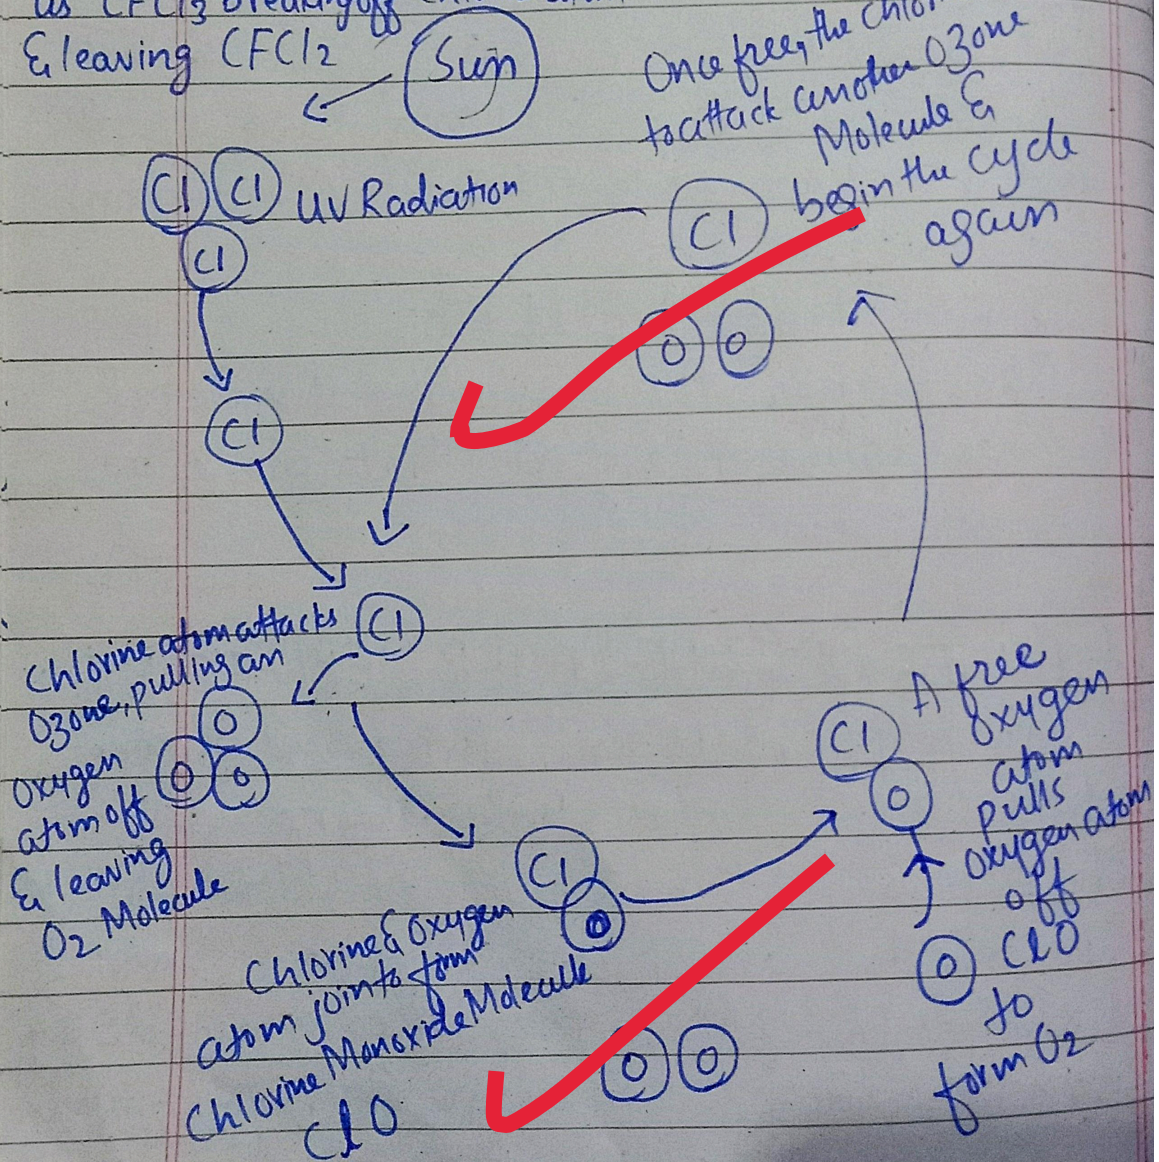 as CFCl3 breaking off
& leaving CFCl2
Sun
Once free, the Chlor
to attack another O3one
Molecule &
begin the Cycle
again
Cl Cl UV Radiation
Cl
Cl
O O
Cl
Cl
Chlorine atom attacks
O3one, pulling an
oxygen
atom off
& leaving
O2 Molecule
O
O O
Cl
O
Chlorine & Oxygen
atom join to form
Chlorine Monoxide Molecule
ClO
O O
Cl
O
A free
oxygen
atom
pulls
oxygen atom
off
O ClO
to
form O2